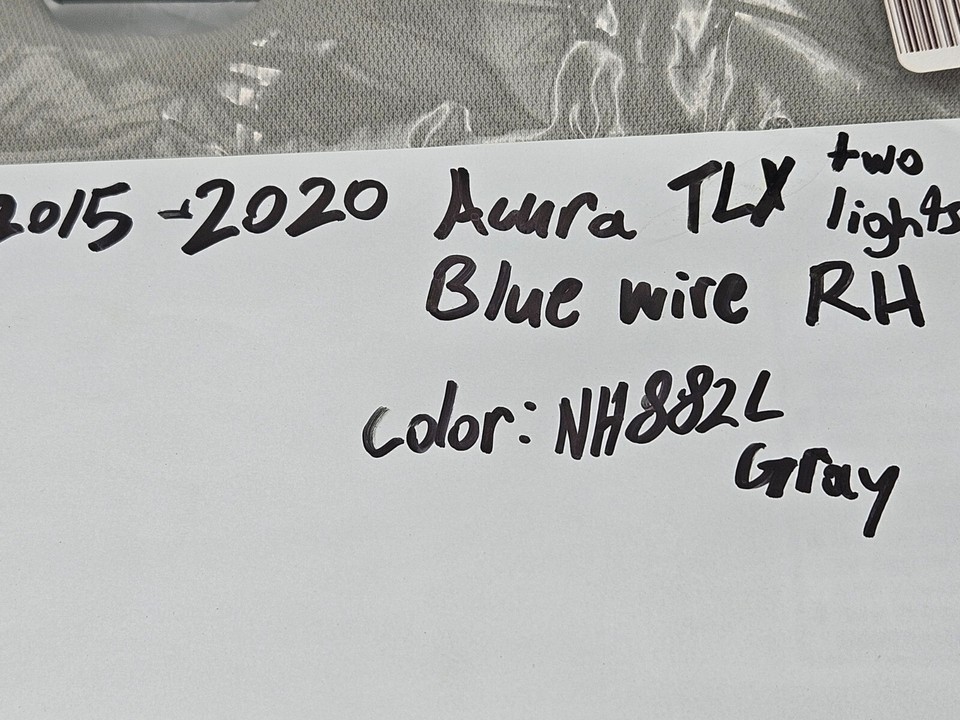 2015-2020 Acura TLX two lights
Blue wire RH
Color: NH882L
Gray